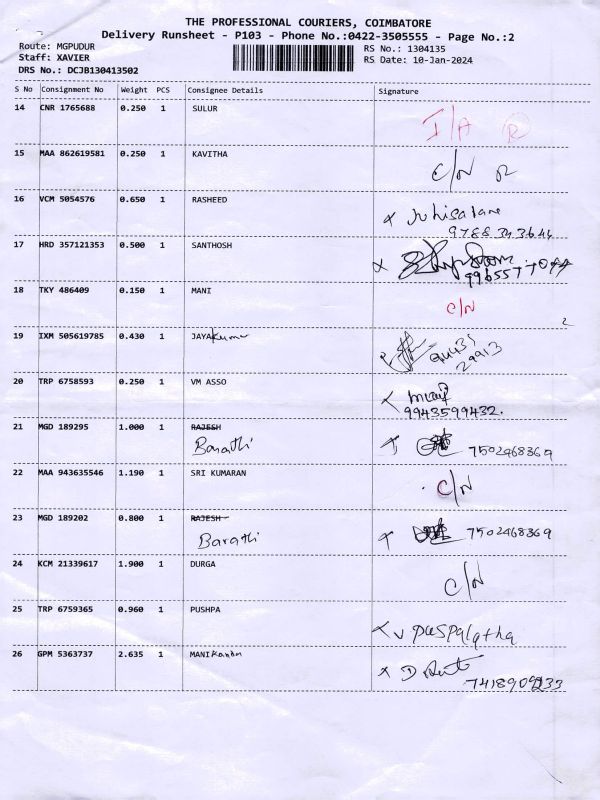 THE PROFESSIONAL COURIERS, COIMBATORE
Delivery Runsheet - P103 - Phone No.:0422-3505555 - Page No.:2
Route: MGPUDUR RS No.: 1304135
Staff: XAVIER RS Date: 10-Jan-2024
DRS No.: DCJB130413502
S No Consignment No Weight PCS Consignee Details Signature
14 CNR 1765688 0.250 1 SULUR I/A R
15 MAA 862619581 0.250 1 KAVITHA C/N R
16 VCM 5054576 0.650 1 RASHEED
17 HRD 357121353 0.500 1 SANTHOSH
18 TKY 486409 0.150 1 MANI C/N
2
19 IXM 505619785 0.430 1 JAYAKumar
20 TRP 6758593 0.250 1 VM ASSO
9943599432.
21 MGD 189295 1.000 1 RAJESH
Barathi 7502468369
22 MAA 943635546 1.190 1 SRI KUMARAN C/N
23 MGD 189202 0.800 1 RAJESH
Barathi 7502468369
24 KCM 21339617 1.900 1 DURGA C/N
25 TRP 6759365 0.960 1 PUSHPA
v puspalatha
26 GPM 5363737 2.635 1 MANIKandan